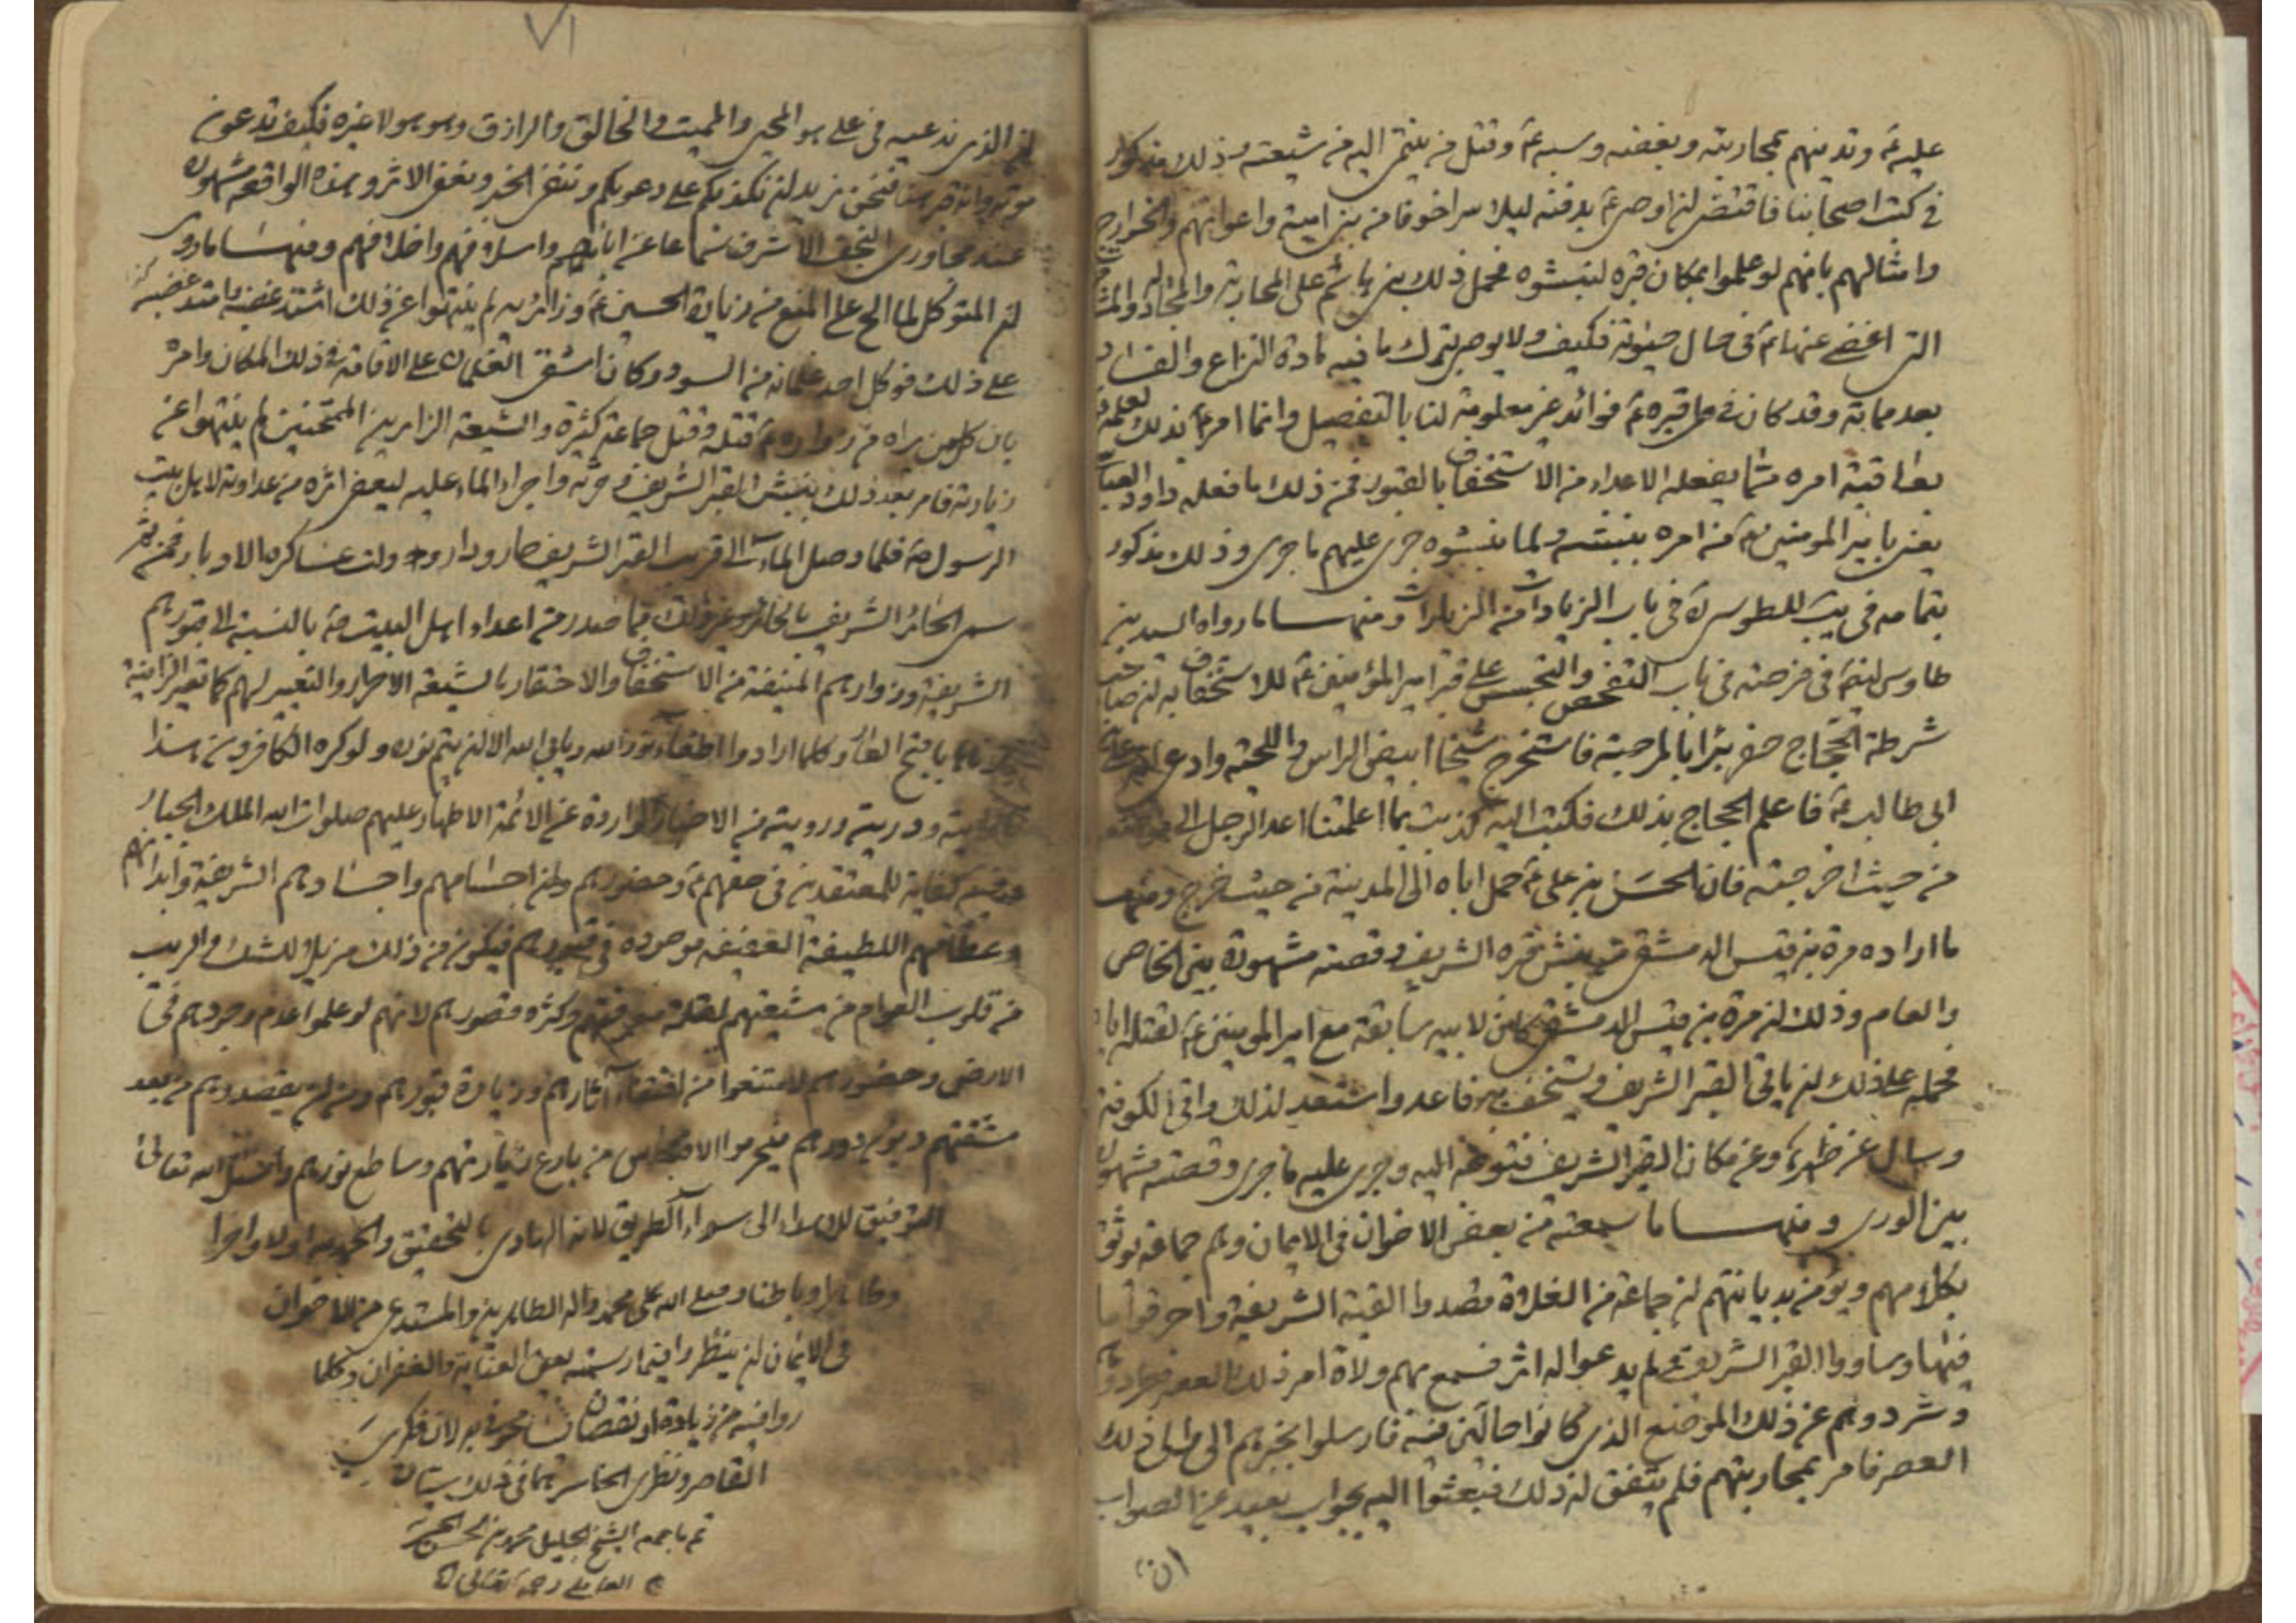 عليه ع وتدينهم بمحاربته وبغضه وسبه ع وقتل من ينتمى اليه من شيعته وذلك مذكور
فى كتب اصحابنا فاقتضى ان اوصى ع بدفنه ليلا سرا خوفا من بنى امية واعوانهم والخوارج
وامثالهم بانهم لو علموا بمكان قبره لنبشوه فحمل ذلك بنى هاشم على المحاربة
التى اغضى عنها ع فى حال حيوته فكيف ولا يوصى بترك ما فيه مادة النزاع والفساد
بعد مماته وقد كان فى قبره ع فوائد غير معلومة لنا بالتفصيل وانما امر ع بذلك لعلمه
بعاقبة امره مما يفعله الاعداء من الاستخفاف بالقبور فمن ذلك ما فعله داود العباسى
يعنى بامير المؤمنين ع من امره بنبشه ولما نبشوه جرى عليهم ما جرى وذلك مذكور
بتمامه فى يب للطوسى ره فى باب الزيادات من الزيارات ومنها ما رواه السيد بن
طاوس ايضا فى فرحته فى باب التفحص والتجسس على قبر امير المؤمنين ع للاستخفاف به ان صاحب
شرطة الحجاج حفر بئرا بالرحبة فاستخرج شيخا ابيض الراس واللحية وادعى انه على بن
ابى طالب ع فاعلم الحجاج بذلك فكتب اليه كذبت بما اعلمتنا اعد الرجل الى موضعه
من حيث اخرجته فان الحسن بن على ع حمل اباه الى المدينة من حيث خرج ومنها
ما اراده مرة بن قيس الدمشقى من نبش قبره الشريف وقصته مشهورة بين الخاص
والعام وذلك ان مرة بن قيس الدمشقى كان لابيه سابقة مع امير المؤمنين ع لقتله اباه
فحمله على ذلك ان ياتى القبر الشريف ويستخف به فاعد واستعد لذلك واتى الكوفة
وسال عن ظهر كم وعن مكان القبر الشريف فتوجه اليه وجرى عليه ما جرى وقصته مشهورة
بين الورى ومنها ما سمعته من بعض الاخوان فى الايمان وهم جماعة يوثق
بكلامهم ويؤمن بديانتهم ان جماعة من الغلاة قصدوا القبة الشريفة واحرقوا ما
فيها وساووا القبر الشريف ولم يدعوا له اثر فسمع بهم ولاة امر ذلك العصر فطردوهم
وشردوهم عن ذلك الموضع الذى كانوا حالين فيه فارسلوا بخبرهم الى سلطان ذلك
العصر فامر بمحاربتهم فلم يتفق له ذلك فبعثوا اليه بجواب بعيد عن الصواب
ان
٧١
ان الذى ندعيه فى على هو المحيى والمميت والخالق والرازق وهو هو لا غيره فكيف تدعون
موته وانه قبر هنا فنحن نريد ان نكذبكم على دعويكم وننفى الخبر ونعفى الاثر وهذه الواقعة مشهورة
عند مجاورى النجف الاشرف سماعا عن ابائهم واسلافهم واخلافهم ومنها ما روى
ان المتوكل لما الح على المنع من زيارة الحسين ع وزائريه لم ينتهوا عن ذلك اشتد غضبه
على ذلك فوكل احد غلمانه من السود وكان اشقى الغلمان على الاقامة فى ذلك المكان وامره
بان كل من يراه من زواره ع قتله وقتل جماعة كثيرة والشيعة الزايرين الممتحنين لم ينتهوا عن
زيارته فامر بعد ذلك بنبش القبر الشريف وحرثه واجراء الماء عليه ليعفى اثره من عداوته لاهل بيت
الرسول ص فلما وصل الماء الى قريب القبر الشريف حار ودار وولت عساكره الادبار فمن ثم
سمى الحائر الشريف بالحائر وغير ذلك مما صدر من اعداء اهل البيت ص بالنسبة الى قبورهم
الشريفة وزوارهم المنيفة من الاستخفاف والاحتقار بالشيعة الاحرار والتعيير لهم كما تعير الزانية
بزناها بافتح العار وكلما ارادوا اطفاء نور الله ويابى الله الا ان يتم نوره ولو كره الكافرون هذا
ودريته ورويته من الاخبار الواردة عن الائمة الاطهار عليهم صلوات الله الملك الجبار
فيه كفاية للمعتقدين فى حقهم ع وحضورهم وان اجسامهم واجسادهم الشريفة وابدانهم
وعظامهم اللطيفة العفيفة موجودة فى قبورهم فيكون من ذلك مزيل للشك والريب
من قلوب العوام من شيعتهم لقلة معرفتهم وكثرة قصورهم لانهم لو علموا عدم وجودهم فى
الارض وحضورهم لامتنعوا من اقتفاء آثارهم وزيارة قبورهم ومن ان يقصدوهم من بعد
شقتهم ودورهم فيحرموا الاقتباس من بارع زيارتهم وساطع نورهم واسئل الله تعالى
التوفيق للاهتداء الى سواء الطريق لانه الهادى بالتحقيق والحمد لله اولا واخرا
وظاهرا وباطنا وصلى الله على محمد واله الطاهرين والمستدعى من الاخوان
فى الايمان ان ينظروا فيما رسمته بعين العناية والغفران وكلما
راوا فيه من زيادة او نقصان لان فكرى
القاصر ونظرى الخاسر هما فى ذلك سيان
تم ما جمعه الشيخ الجليل محمد بن الحسن الحر
العاملى رحمه الله تعالى